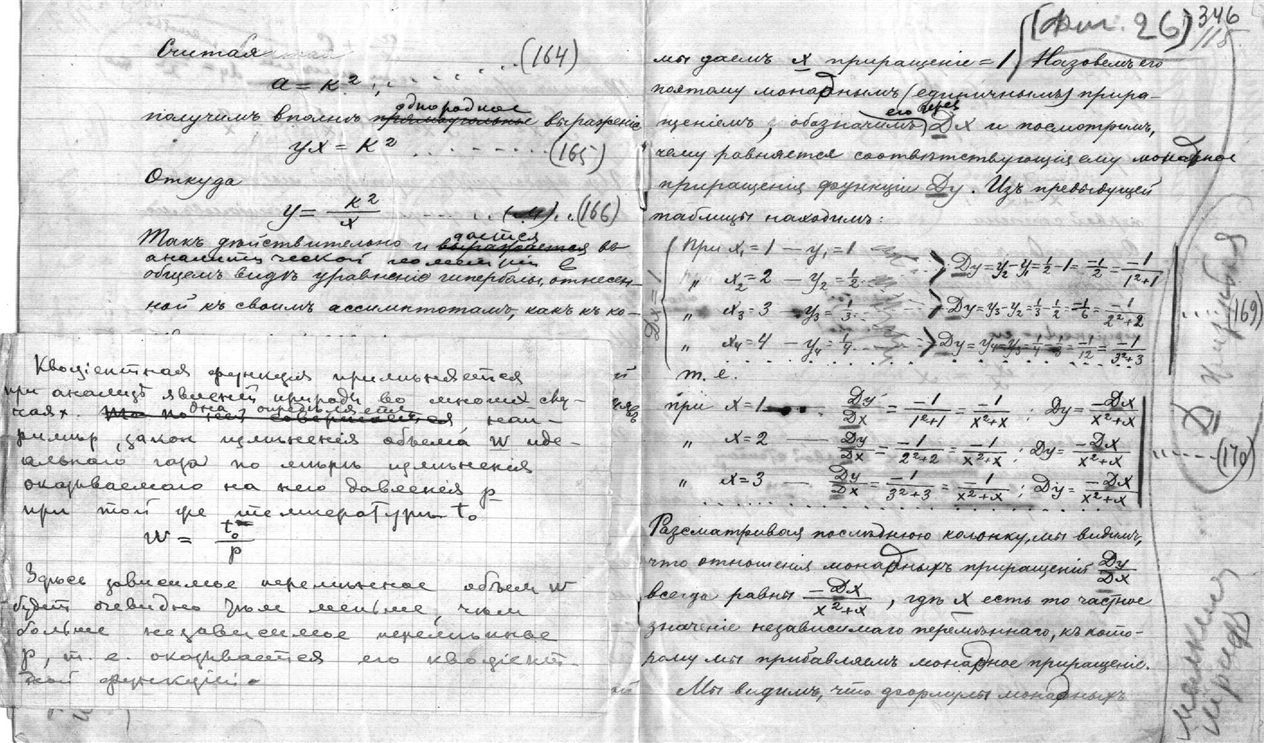 Считая
a = к² , . . . . . . . (164)
однородное
получимъ вполнѣ прямоугольные выраженіе
yx = к² . . . . . . . (165)
Откуда
y = к²/x . . . . . . (166)
дается
Такъ дѣйствительно и выражается въ
аналитической геометріи въ
общемъ видѣ уравненіе гиперболы, отнесен-
ной къ своимъ ассимптотамъ, какъ къ ко-
Квоціентная функція примѣняется
при анализѣ явленій природы во многихъ слу-
чаяхъ. , напри-
мѣръ, законъ измѣненія объема w иде-
альнаго газа по мѣрѣ измѣненія
оказываемаго на него давленія p
при той же температурѣ t₀
w = t₀/p
Здѣсь зависимое перемѣнное объем w
будет очевидно тѣм меньше, чѣм
больше независимое перемѣнное
p, т. е. оказывается его квоціент-
ной функціей.
(фиг. 26) 346
115
мы даемъ x приращеніе = 1) Назовемъ его
поэтому монаднымъ (единичнымъ) прира-
его через
щеніемъ, обозначимъ Dx и посмотримъ,
чему равняется соотвѣтствующее ему монадное
приращеніе функціи Dy. Изъ предыдущей
таблицы находимъ:
Dx = 1
При x₁ = 1 — y₁ = 1
„ x₂ = 2 — y₂ = 1/2 > Dy = y₂ - y₁ = 1/2 - 1 = -1/2 = -1/(1²+1)
„ x₃ = 3 — y₃ = 1/3 > Dy = y₃ - y₂ = 1/3 - 1/2 = -1/6 = -1/(2²+2) . . . . (169)
„ x₄ = 4 — y₄ = 1/4 > Dy = y₄ - y₃ = 1/4 - 1/3 = -1/12 = -1/(3²+3)
т. е.
при x = 1 Dy/Dx = -1/(1²+1) = -1/(x²+x) ; Dy = -Dx/(x²+x)
„ x = 2 — Dy/Dx = -1/(2²+2) = -1/(x²+x) ; Dy = -Dx/(x²+x) . . . . . (170)
„ x = 3 — Dy/Dx = -1/(3²+3) = -1/(x²+x) ; Dy = -Dx/(x²+x)
Разсматривая послѣднюю колонку, мы видимъ,
что отношенія монадныхъ приращеній Dy/Dx
всегда равны -Dx/(x²+x) , гдѣ x есть то частное
значеніе независимаго перемѣннаго, къ кото-
рому мы прибавляемъ монадное приращеніе.
Мы видимъ, что формулы монадныхъ
D